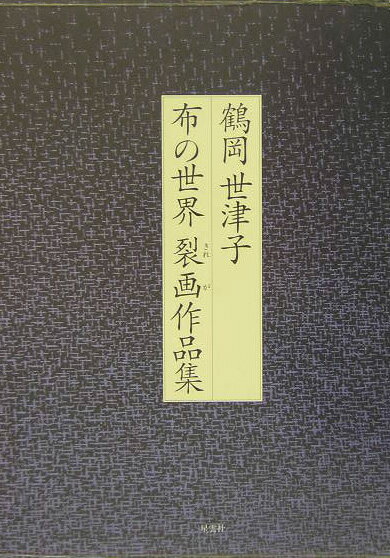 鶴岡 世津子
布の世界 裂画作品集
きれ が
星雲社